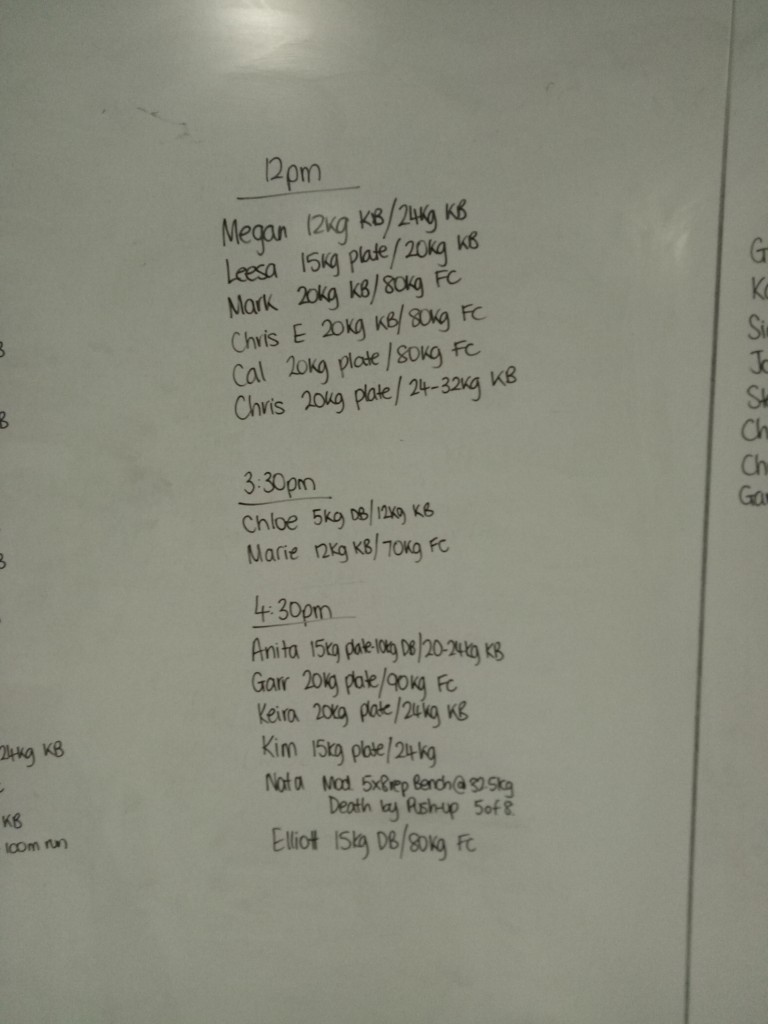 12pm
Megan 12kg KB/24kg KB
Leesa 15kg plate/20kg KB
Mark 20kg KB/80kg FC
Chris E 20kg KB/80kg FC
Cal 20kg plate/80kg FC
Chris 20kg plate/24-32kg KB
3:30pm
Chloe 5kg DB/12kg KB
Marie 12kg KB/70kg FC
4:30pm
Anita 15kg plate-10kg DB/20-24kg KB
Garr 20kg plate/90kg FC
Keira 20kg plate/24kg KB
Kim 15kg plate/24kg
Nata Mod. 5x8rep Bench@32.5kg
Death by Push-up 5 of 8
Elliott 15kg DB/80kg FC
24kg KB
KB
100m run